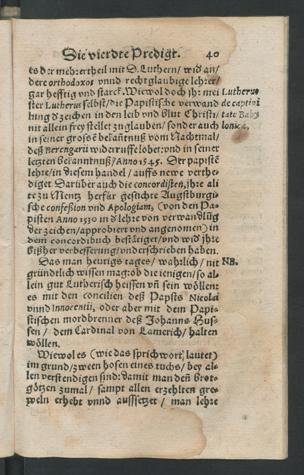 Die vierdte Predigt. 40
es der mehrertheil mit D. Luthern/ wid an/
dere orthodoxos vnnd rechtglaubige lehrer/
gar hefftig vnd starck. Wiewol doch jhr mei Lutherus
ster Lutherus selbst/ die Papistische verwand de captiui
lung d'zeichen in den leib vnd blut Christi/ tate Baby
nit allein frey stellet zuglauben/ sonder auch lonica.
in seiner grosse bekañtnuß vom Nachtmal/
deß Berengarij widerruff lobet: vnd in seiner
letzten Bekanntnuß/ Anno 1545. Der papistẽ
lehre/ in diesem handel/ auffs newe verthe/
diget Darüber auch die concordisten, jhre al
te zu Mentz herfür gesuchte Augstburgi
sche confession vnd Apologiam, (von den Pa
pisten Anno 1530 in d'lehre von verwandlũg
der zeichen/ approbiert vnd angenomen) in
dem concordibuch bestätiget/ vnd wid jhre
bißher verbesserung/ vnderschrieben haben.
Das man heutigs tages/ warlich/ nit NB.
gründtlich wissen mag/ ob die jenigen/ so al
lein gut Lutherisch heissen vñ sein wöllen:
es mit den concilien deß Papsts Nicolai
vnnd Innocentij, oder aber mit dem Papi
stischen mordbrenner deß Johanns Hus
sen/ dem Cardinal von Camerich/ halten
wöllen.
Wiewol es (wie das sprichwort lautet)
im grund/ zween hosen eines tuchs/ bey al
len verstendigen sind: damit man deñ Brot
götzen zumal/ sampt allen erzehlten gre
weln erhebt vnnd auffsetzet/ man lehre